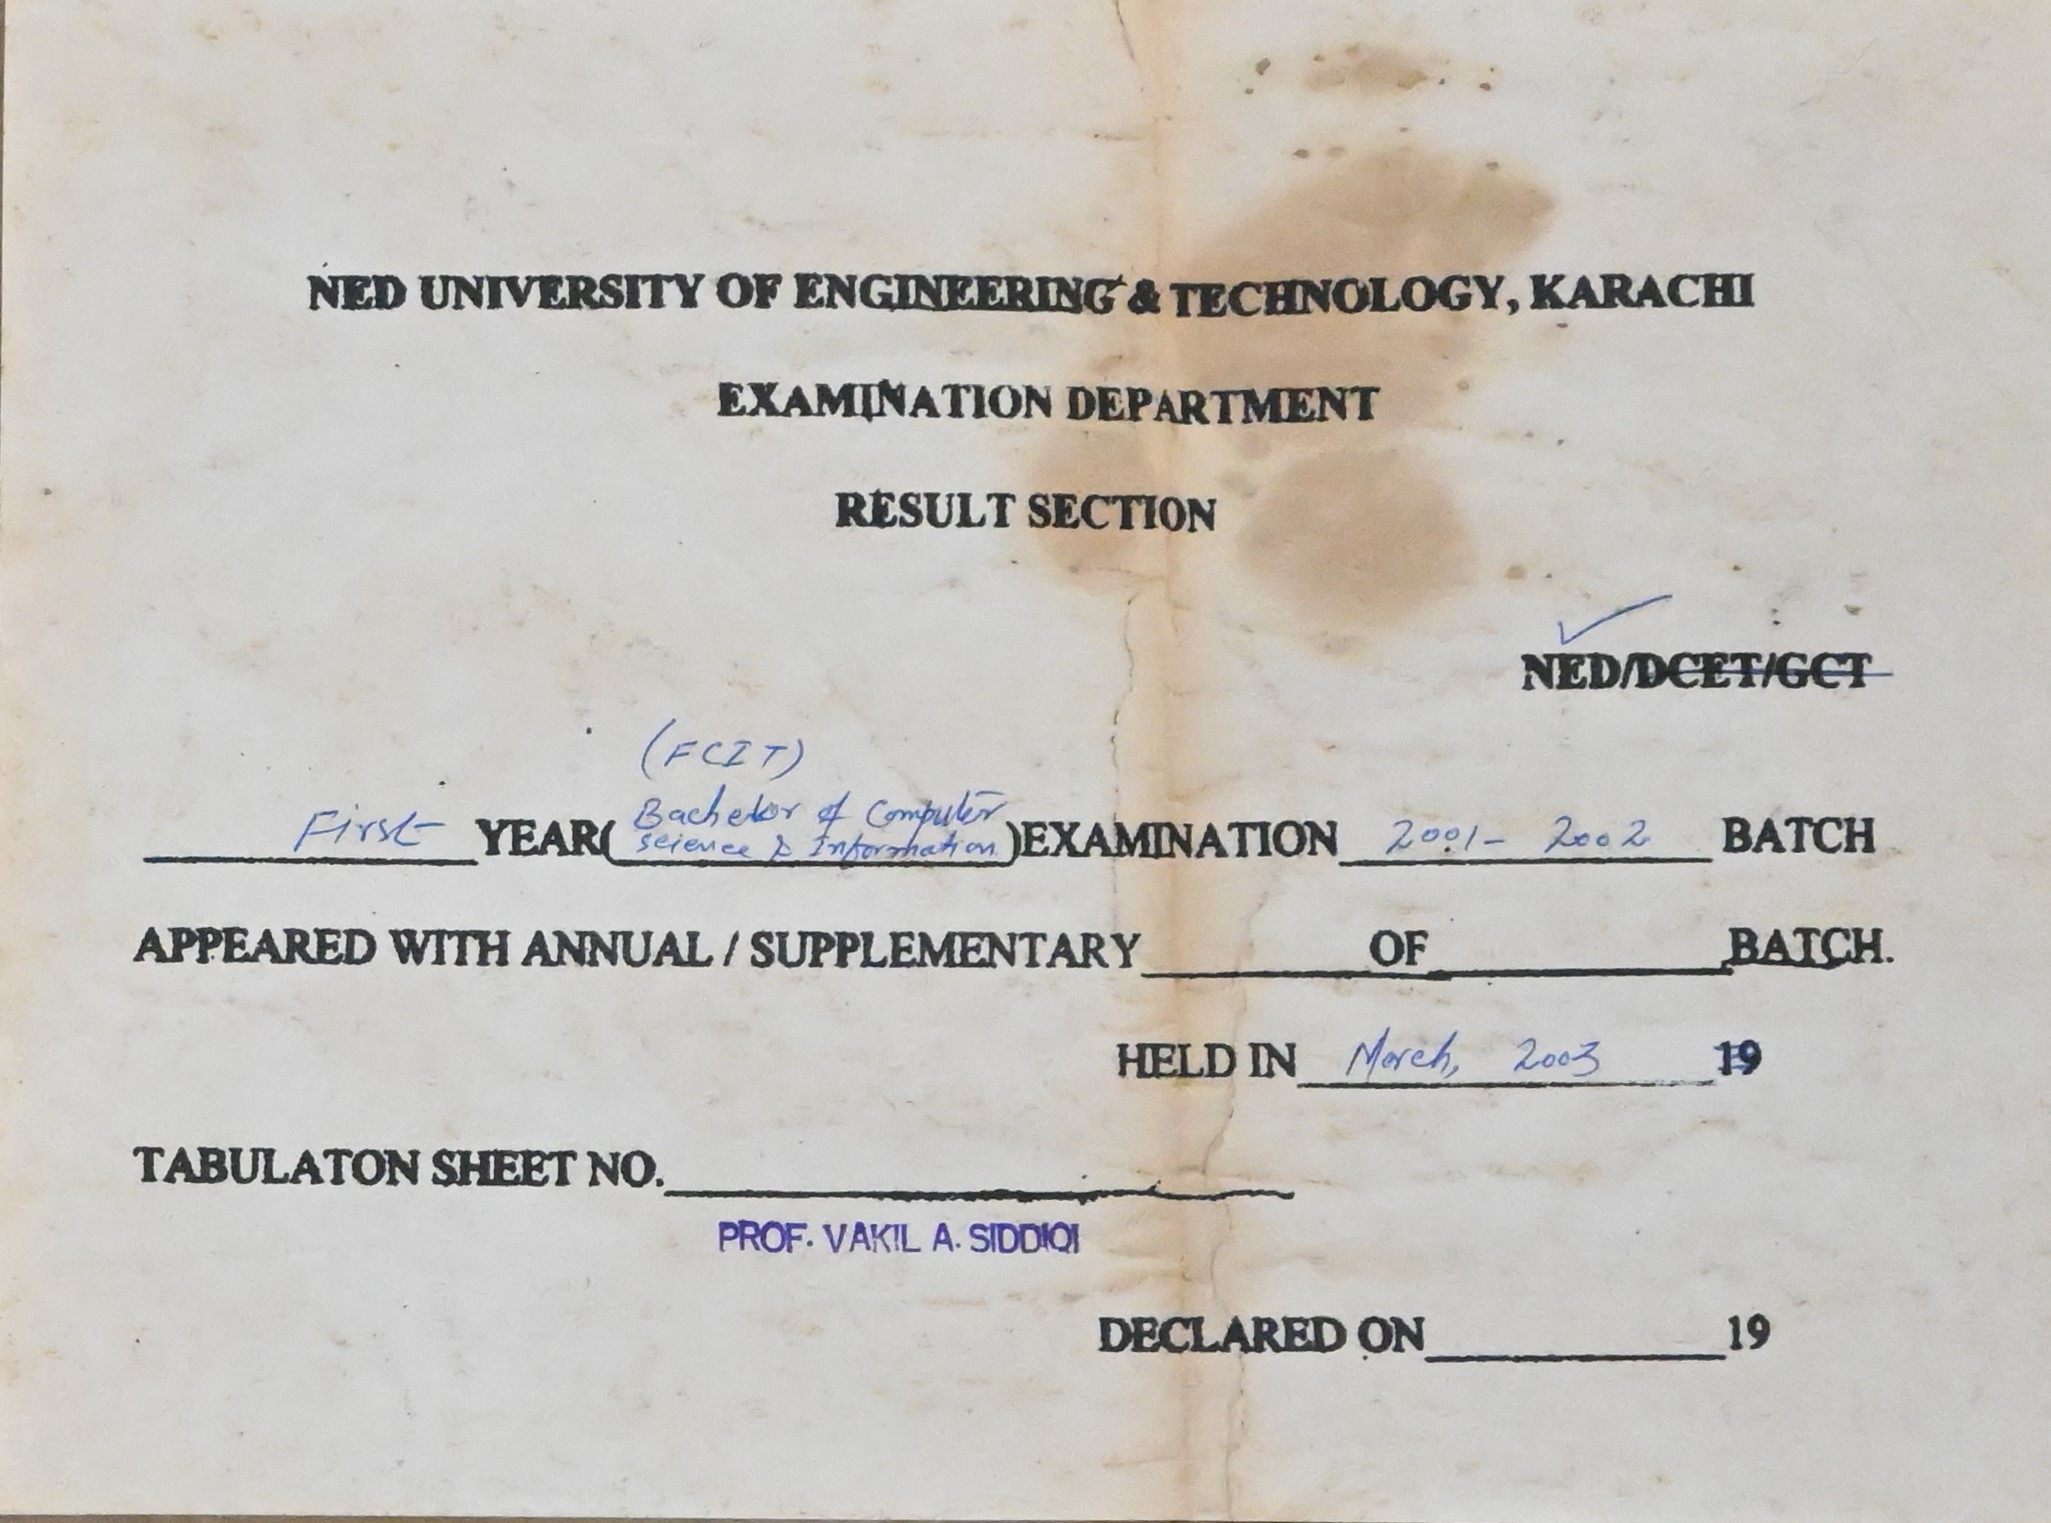 NED UNIVERSITY OF ENGINEERING & TECHNOLOGY, KARACHI
EXAMINATION DEPARTMENT
RESULT SECTION
NED/DCET/GCT
(FCIT)
First YEAR(Bachelor of Computer science & Information)EXAMINATION 2001- 2002 BATCH
APPEARED WITH ANNUAL / SUPPLEMENTARY OF BATCH.
HELD IN March, 2003 19
TABULATON SHEET NO.
PROF. VAKIL A. SIDDIQI
DECLARED ON 19